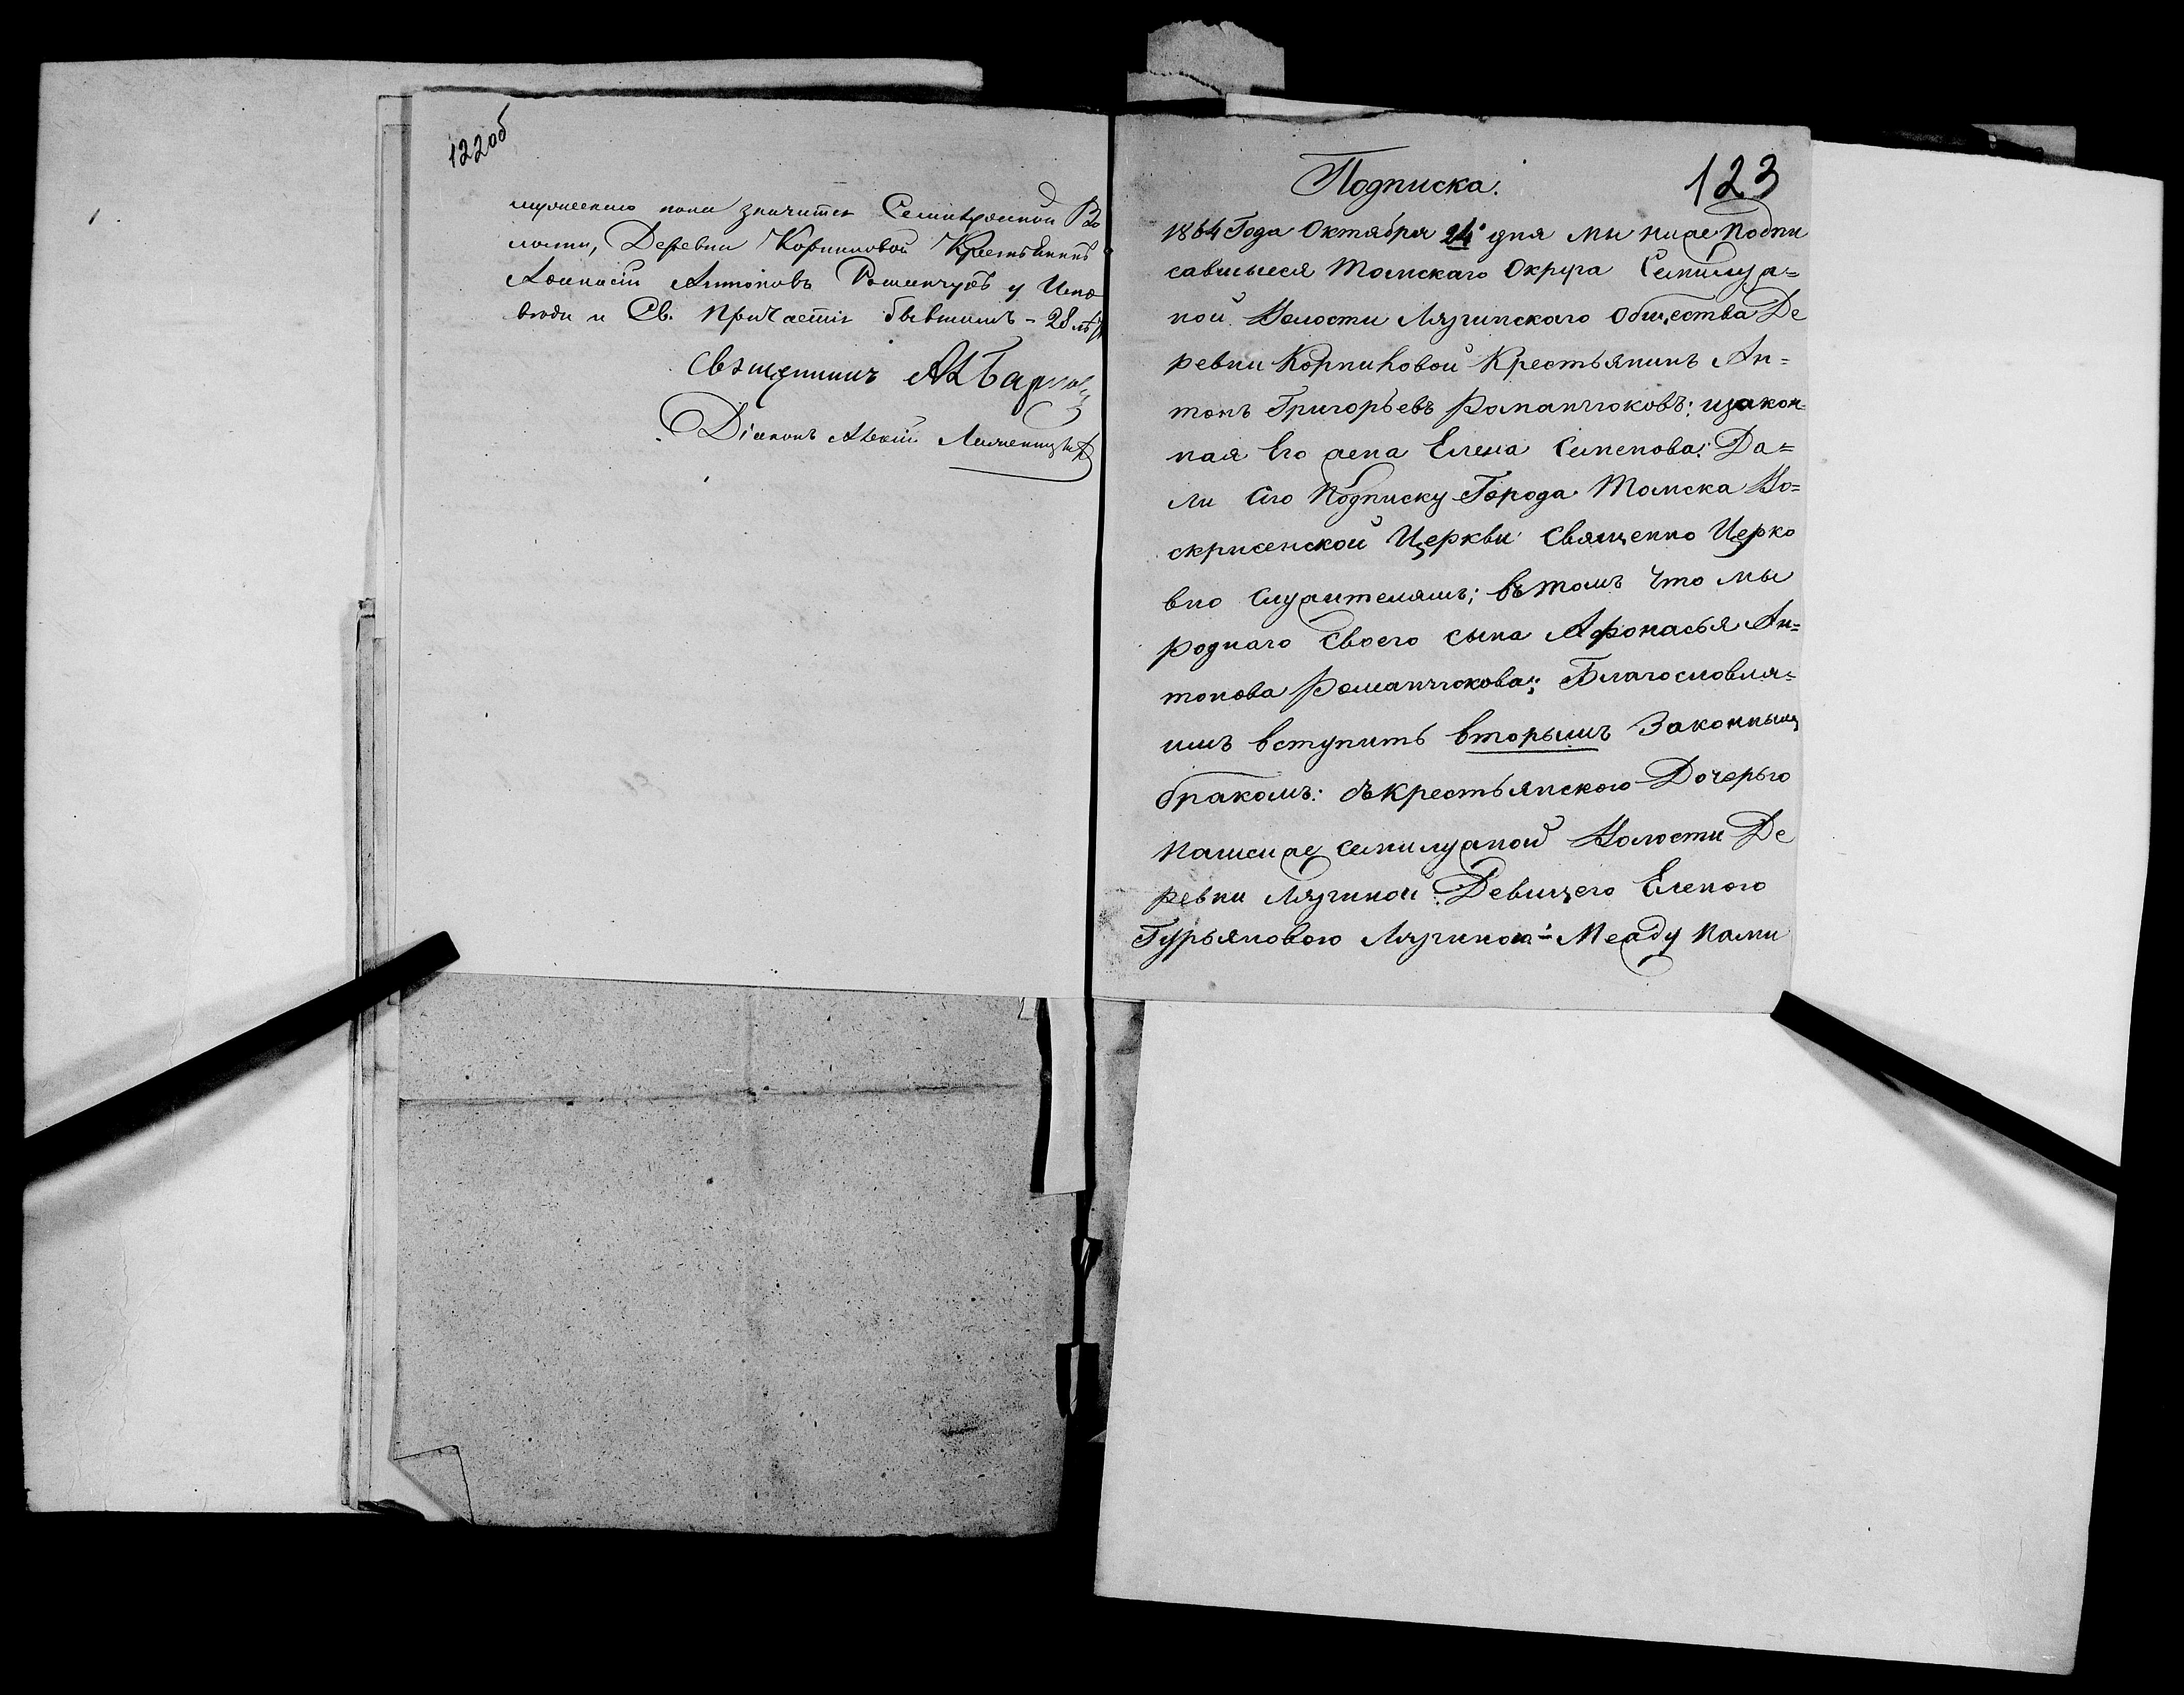 122 об
мужескаго пола значится Семилужной Во
лости, Деревни Корниловой Крестьянинъ
Афанасій Антоновъ Романчуковъ у Испо
вѣди и Св. Причастія бывшимъ - 28 лѣтъ
Священникъ
Діаконъ
123
Подписка.
1864 Года Октября 24 дня мы ниже подпи
савшыеся Томскаго Округа Семилуж=
ной Волости Лязгинскаго Общества Де
ревни Корниловой Крестьянинъ Ан=
тонъ Григорьевъ Романчюковъ; изакон
ная Его жена Елена Семенова: Да=
ли Сію Подписку Города Томска Во=
скрисенской Церкви Священно Церко
вно служителямъ; въ томъ что мы
роднаго своего сына Афонасья Ан=
тонова Романчюкова; Благословля=
имъ вступить вторымъ Законнымъ
бракомъ: съкрестьянскою Дочерью
нашей же семилужной Волости Де
ревни Лязгиной Девицею Еленою
Гурьяновою Лязгиною Между нами